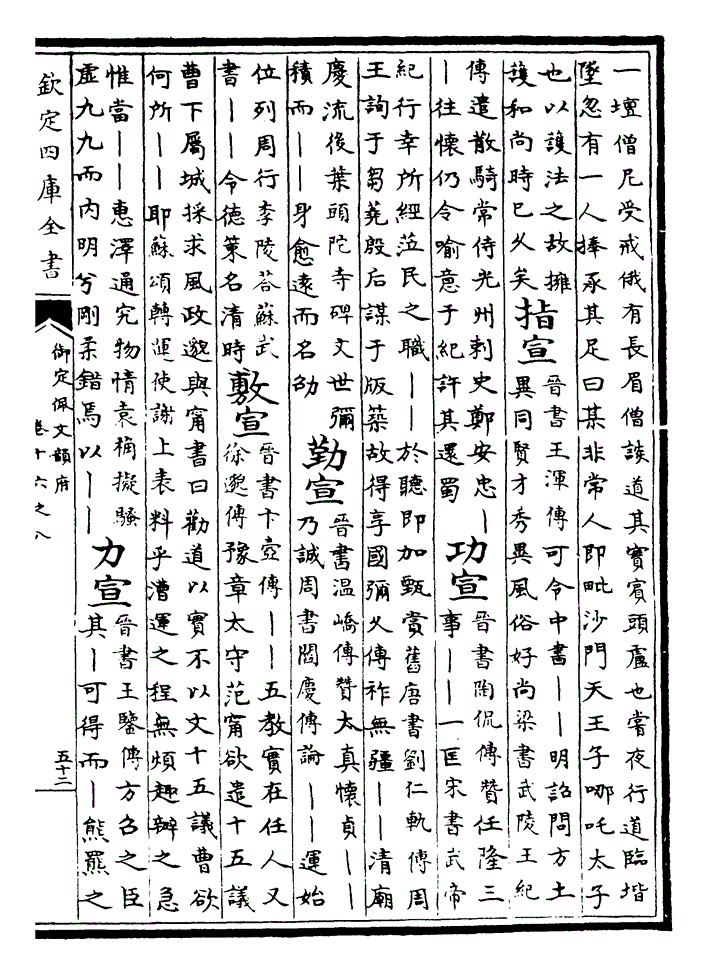 一壇僧尼受戒俄有長眉僧談道其實賓頭盧也嘗夜行道臨堦
墜忽有一人捧承其足曰某非常人即毗沙門天王子哪吒太子
也以護法之故擁
護和尚時已久矣
指宣
晉書王渾傳可令中書——明詔問方土
異同賢才秀異風俗好尚梁書武陵王紀
傳遣散騎常侍光州刺史鄭安忠—
—往懷仍令喻意于紀許其還蜀
功宣
晉書陶侃傳贊任隆三
事——一匡宋書武帝
紀行幸所經蒞民之職——於聽即加甄賞舊唐書劉仁軌傳周
王詢于芻蕘殷后謀于版築故得享國彌久傳祚無疆——清廟
慶流後葉頭陀寺碑文世彌
積而——身愈遠而名劭
勤宣
晉書温嶠傳贊太真懷貞——
乃誠周書閻慶傳論——運始
位列周行李陵荅蘇武
書——令德策名清時
敷宣
晉書卞壼傳——五教實在任人又
徐邈傳豫章太守范甯欲遣十五議
曹下屬城採求風政邈與甯書曰勸道以實不以文十五議曹欲
何所——耶蘇頌轉運使謝上表料乎漕運之程無煩趣辦之急
惟當——惠澤通究物情袁桷擬騷
虛九九而内明兮剛柔錯焉以——
力宣
晉書王鑒傳方召之臣
其—可得而—熊羆之
欽定四庫全書
御定佩文韻府
卷十六之八
五十二